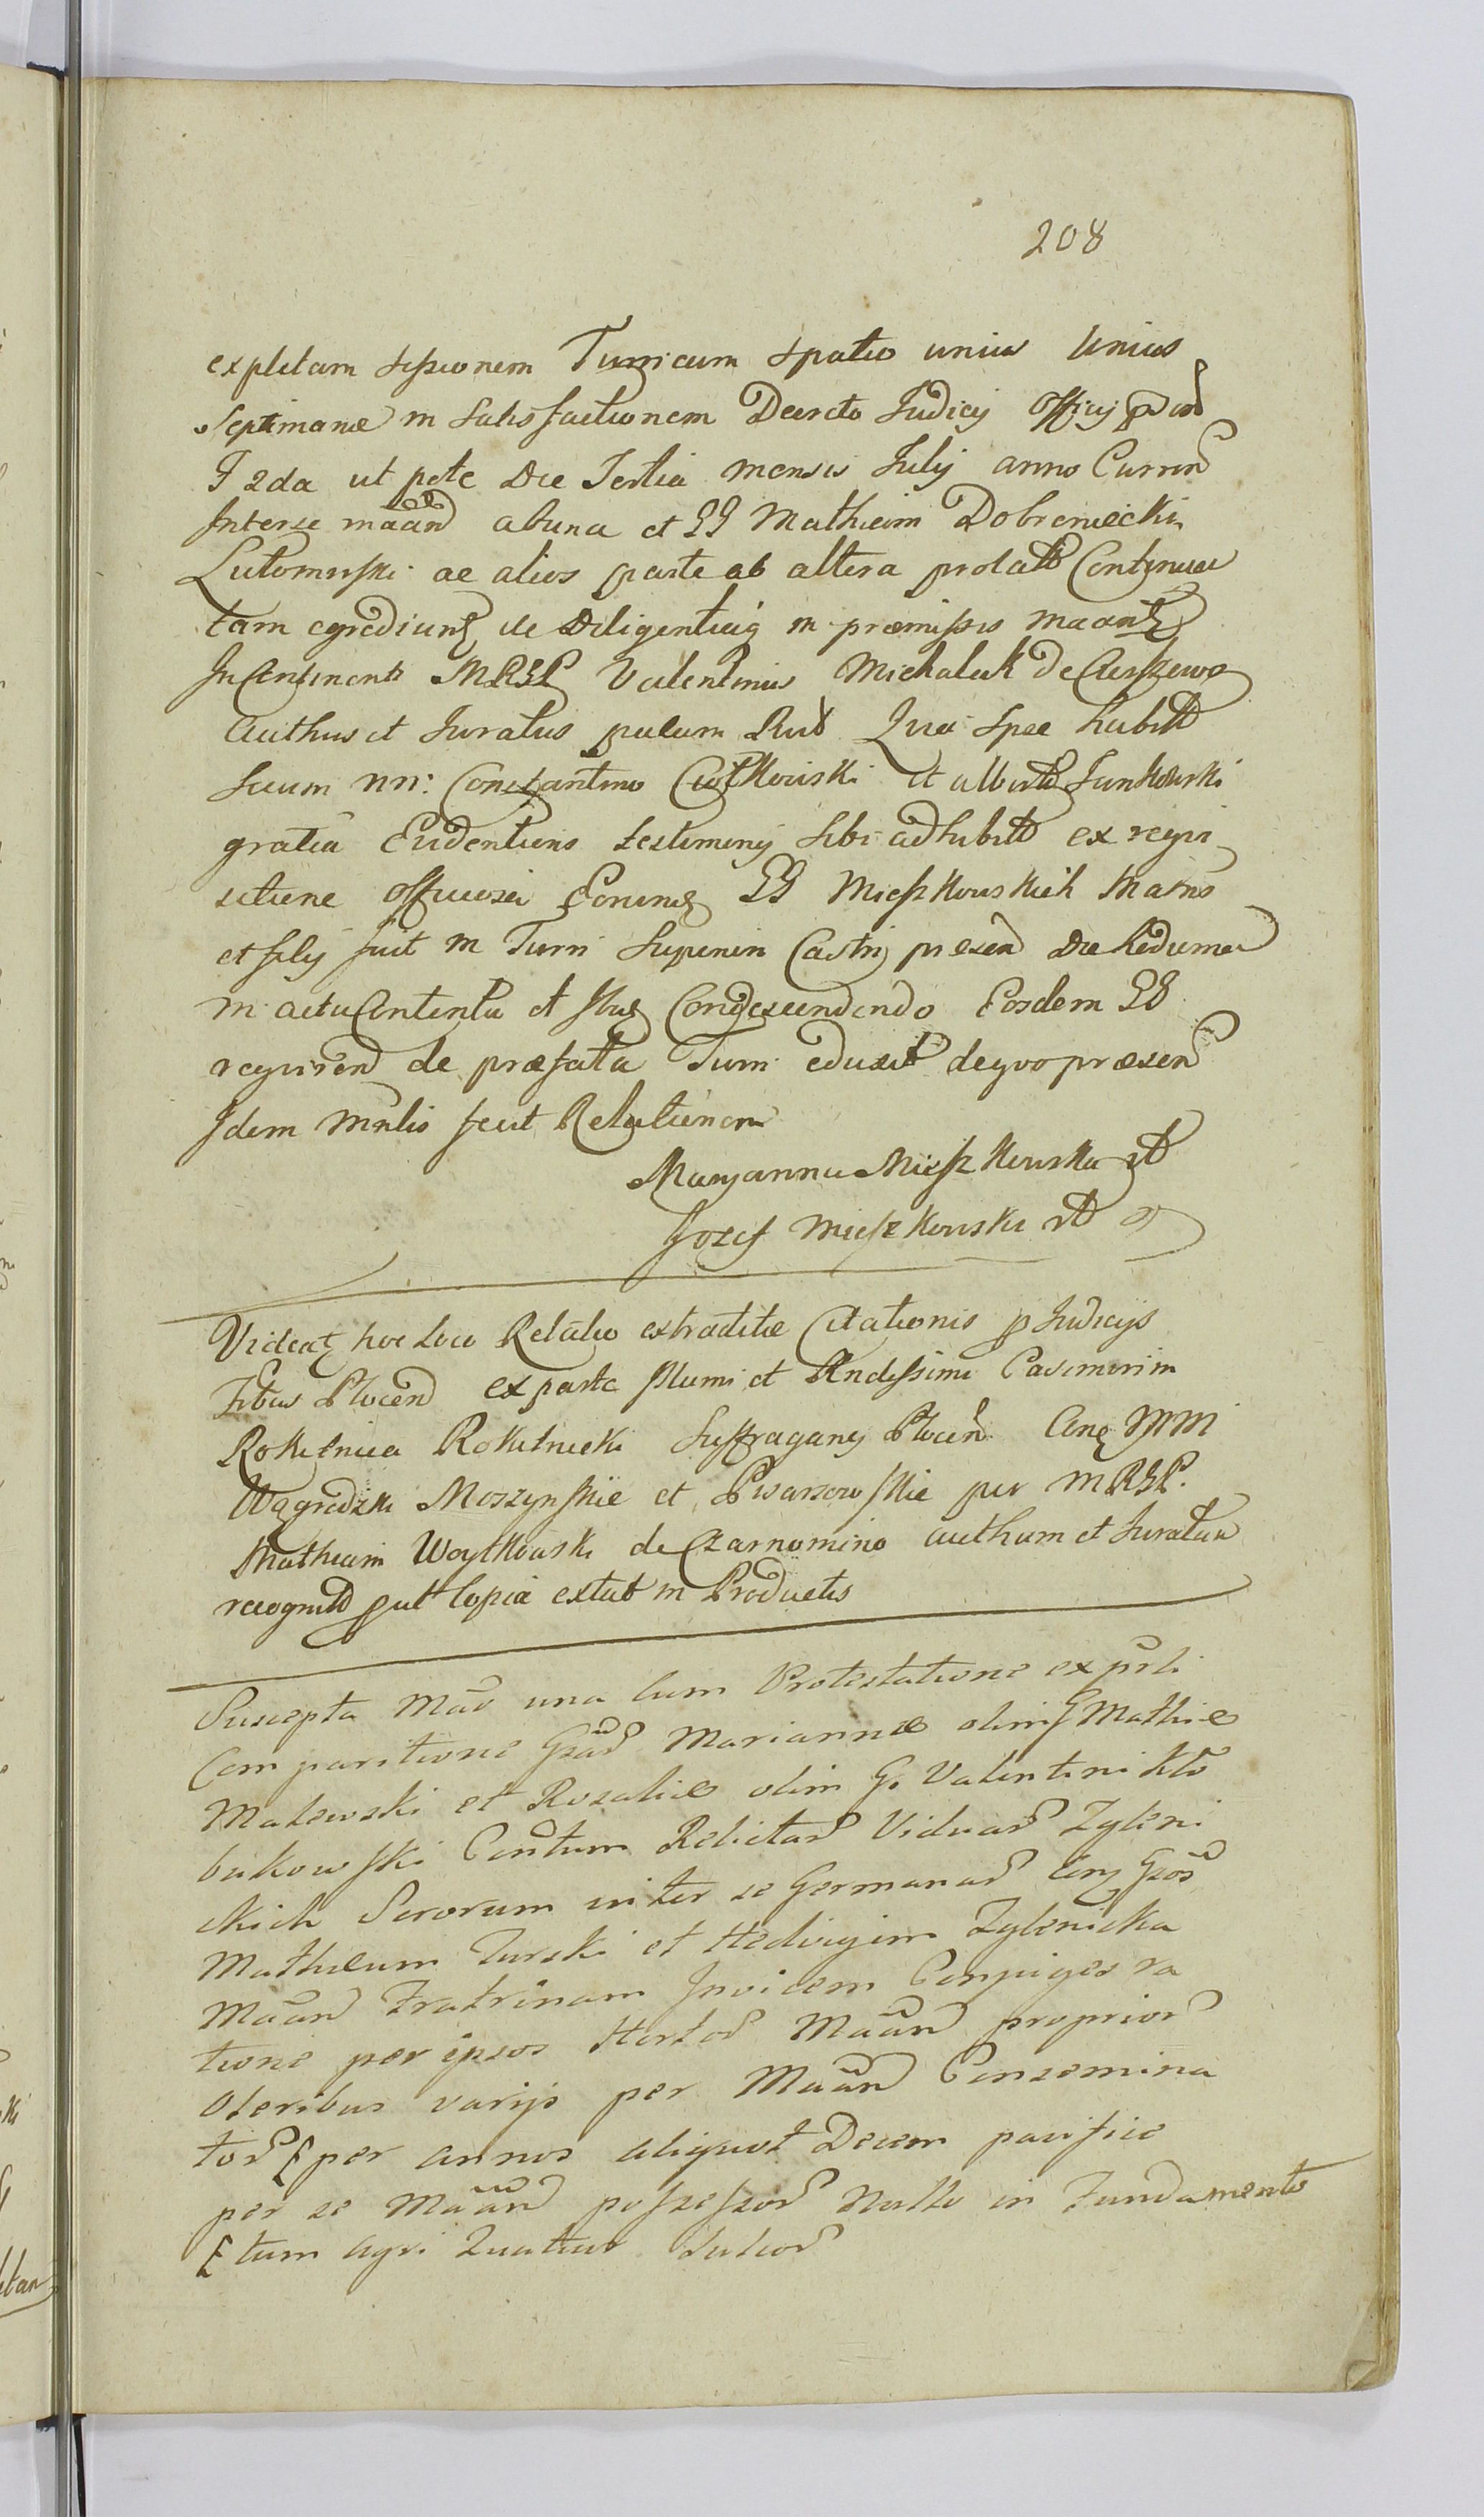 208
expletam sessionem Turricum spatio unius Unius
Septimanæ in satisfactionem Decreto Judicij Officij
F 2da ut pote Die Tertia mensis Julij anno Curren
Interse maand abuna et GG Mathiam Dobrenieckim
Lutomirski ac alios parte ab altera prolatt Continua
tam egrediunt de Diligentijs in præmissis
In Continenti MRGP Valentinus Michalak de
Authus et Juratus palam Quia spae habitt
secum nn: Constantino Ciołkowski et Alberto Jankowski
gratia Evidentioris testimonij sibi adhibitt ex requi
sitione officiosa GG Mieszkowskich Matris
et filij fuit in Turri Superiori Castri presen Die hodierna
in actu Contenta et Condescendendo Eosdem GG
requiren de præfata Turri eduxit de quo præsen
Idem Mnlis fecit Relationem
Maryanna Mieszkowska
Jozef Mieszkowski
Videat hoc loco Relatio extraditæ Citationis p Judicijs
Plocen ex parte Illumi et Rndissimi Casimiri in
Rokitnica Rokitnicki Suffraganij Plocen MM
Mosz​ynskie et per MRGP.
Mathiam Woytkowski de Czarnomino authum et Juratum
recognitt put Copia extat in Productis
Suscepta una Cum Protestatione ex psli
Comparitione Gsar Mariannæ olim G Mathiæ
Malewski et Rosaliæ olim G. Valentini Kło
bukowski Contum Relictar Viduar Zyleni
ckich Sororum inter se Germanar Gsos
Mathæum Turski et Hedvigim Zylenicka
Maan Fratrinam Invicem Conjuges ra
tione per ipsos Hortor Maan proprior
Oleribus varijs per Maan Consemina
tor per annos aliquot Decem pacifice
per se Maan possessor Nullo in Fundamento
tum Agri Quatuor Satior